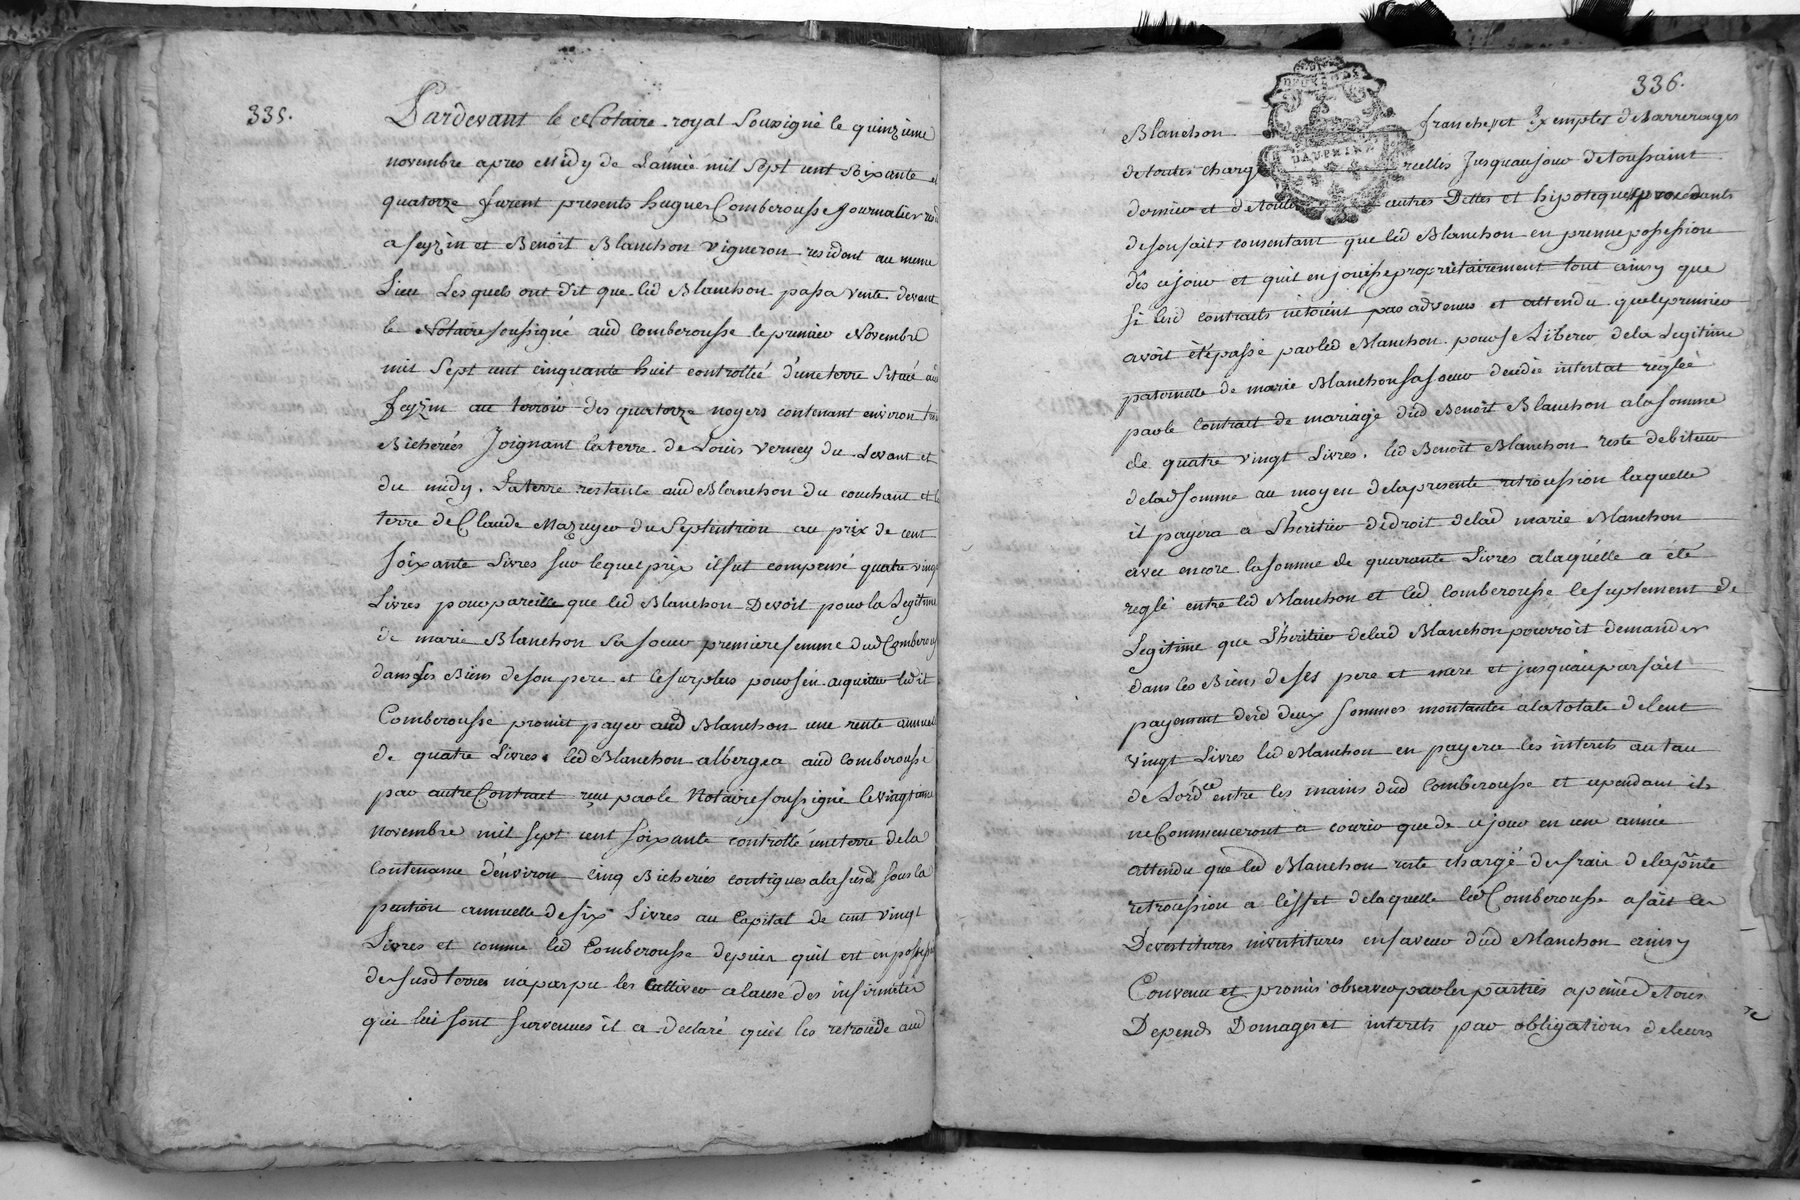 335.
Pardevant le Notaire royal Soussigné le quinzieme
novembre apres Midy de Lannée mil Sept cent Soixante et
quatorze furent presents hugues Comberousse Journalier resid
a feyzin et Benoit Blanchon vigneron residant au meme
Lieu Lesquels ont dit que led Blanchon passa vente devant
le Notaire soussigné aud Comberousse le premier Novembre
mil Sept cent cinquante huit controllée d'une terre Situé aud
feyzin au terroir des quatorze noyers contenant environ trois
Bicherées Joignant la terre de Louis Verney du Levant et
du midy, La terre restante aud Blanchon du couchant et la
terre de Claude Mazuyer du Septentrion au prix de cent
soixante Livres sur lequel prix il fut compensé quatre vingt
Livres pour pareille que led Blanchon Devoit pour la Legitime
de marie Blanchon sa soeur premiere femme dud Comberousse
dans les Biens de son pere et le surplus pour s'en acquitter ledit
Comberousse promit payer aud Blanchon une rente annuelle
de quatre Livres. led Blanchon albergea aud Comberousse
par autre Contract reçu par le Notaire soussigné le vingtieme
novembre mil sept cent soixante controllé une terre de la
contenance d'environ cinq Bicherées contigues a la susd sous la
pention annuelle de six Livres au Capital de cent vingt
Livres et comme led Comberousse depuis quil est en possession
des susd terres n'a pas pu les cultiver a cause des infirmites
qui lui sont survenues il a declaré quil les retrocede aud
336.
DEUX SOLS
DAUPHINÉ
Blanchon franches et Exemptes d'arrerages
de toutes charges reelles Jusquau jour de toussaint
dernier et de toutes autres Dettes et hipoteques procedants
de son faits consentant que led Blanchon en prenne possession
dès ce jour et quil en jouisse proprietairement tout ainsy que
si lesd contracts n'etoient pas advenus et attendu que le premier
avoit été passé par led Blanchon pour se Liberer de la Legitime
paternelle de marie Blanchon sa soeur decedée intestat reglée
par le contract de mariage dud Benoit Blanchon a la somme
de quatre vingt Livres, led Benoit Blanchon reste debiteur
de lad somme au moyen de la presente retrocession laquelle
il payera a L'heritier de droit de lad marie Blanchon
avec encore la somme de quarante Livres a laquelle a été
reglé entre led Blanchon et led Comberousse le suplement de
Legitime que L'heritier de lad Blanchon pourroit demander
dans les Biens de ses pere et mere et jusquau parfait
payement desd deux sommes montantes a la totale de cent
vingt Livres led Blanchon en payera les interets au tau
de Lordce entre les mains dud Comberousse et cependant ils
ne Commenceront a courir que de ce jour en une année
attendu que led Blanchon reste chargé des frais de la pnte
retrocession a l'effet de laquelle led Comberousse a fait les
Devestitures investitures en faveur dud Blanchon ainsy
Convenu et promis observer par les parties a peine de tous
Depends Domages et interets par obligations de leurs